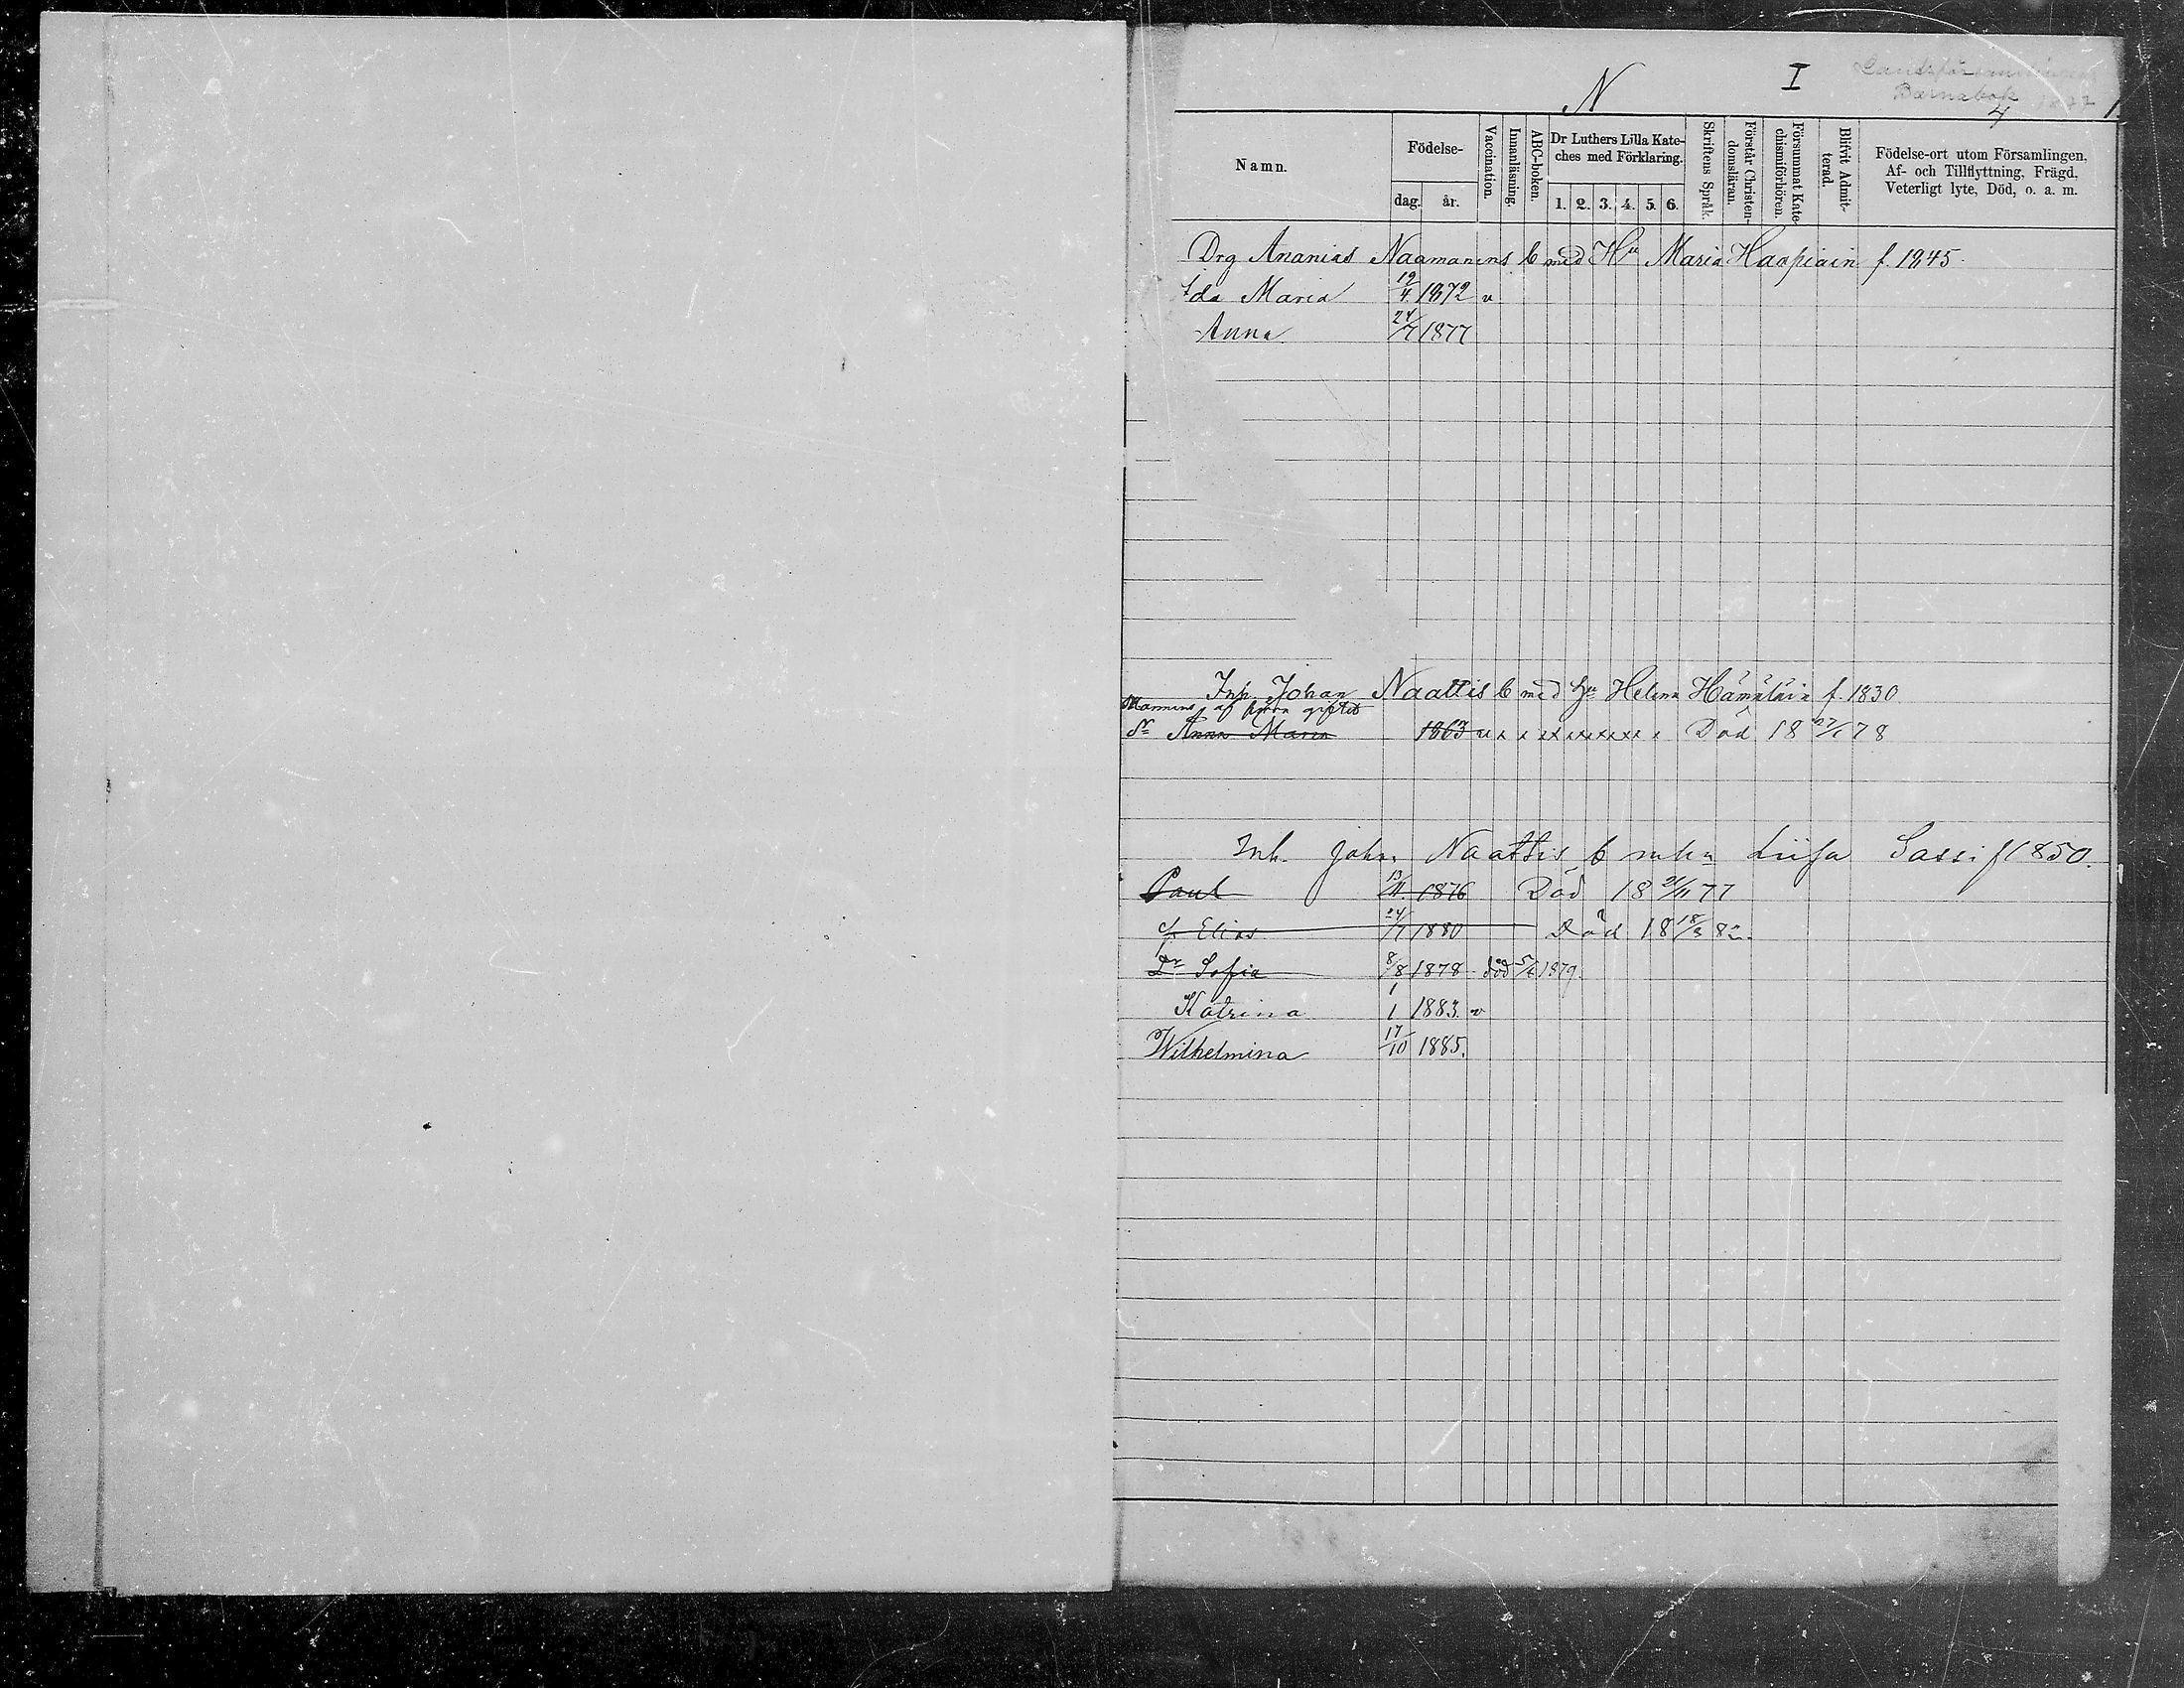 N I
Barnabok 1877
4
Namn.
Födelse-
dag. år.
Vaccination.
Innanläsning.
ABC-boken.
Dr Luthers Lilla Kate-
ches med Förklaring.
1. 2. 3. 4. 5. 6.
Skriftens Språk.
Förstår Christen-
domsläran.
Försummat Kate-
chismiförhören.
Blifvit Admit-
terad.
Födelse-ort utom Församlingen,
Af- och Tillflyttning, Frägd,
Veterligt lyte, Död, o. a. m.
Drg Ananias Naamanens b med Hu Maria Haapiain f. 1845.
Ida Maria 19/4 1872 v
Anna 24/7 1877
Inh. Johan Naattis b med hu Helena Hämäläin f. 1830
Mannens af förra giftet
Dr Anna Maria 1863 v x x x x x x x x x x Död 18 27/1 78
Inh. Johan Naattis b m hu Liisa Sassi f 1850.
Paul 13/11 1876 Död 18 21/11 77
Elias 24/7 1880 Död 18 18/3 82.
Dr Sofia 8/8 1878 död 5/6 1879.
Katrina 1/1 1883. v
Wilhelmina 17/10 1885.